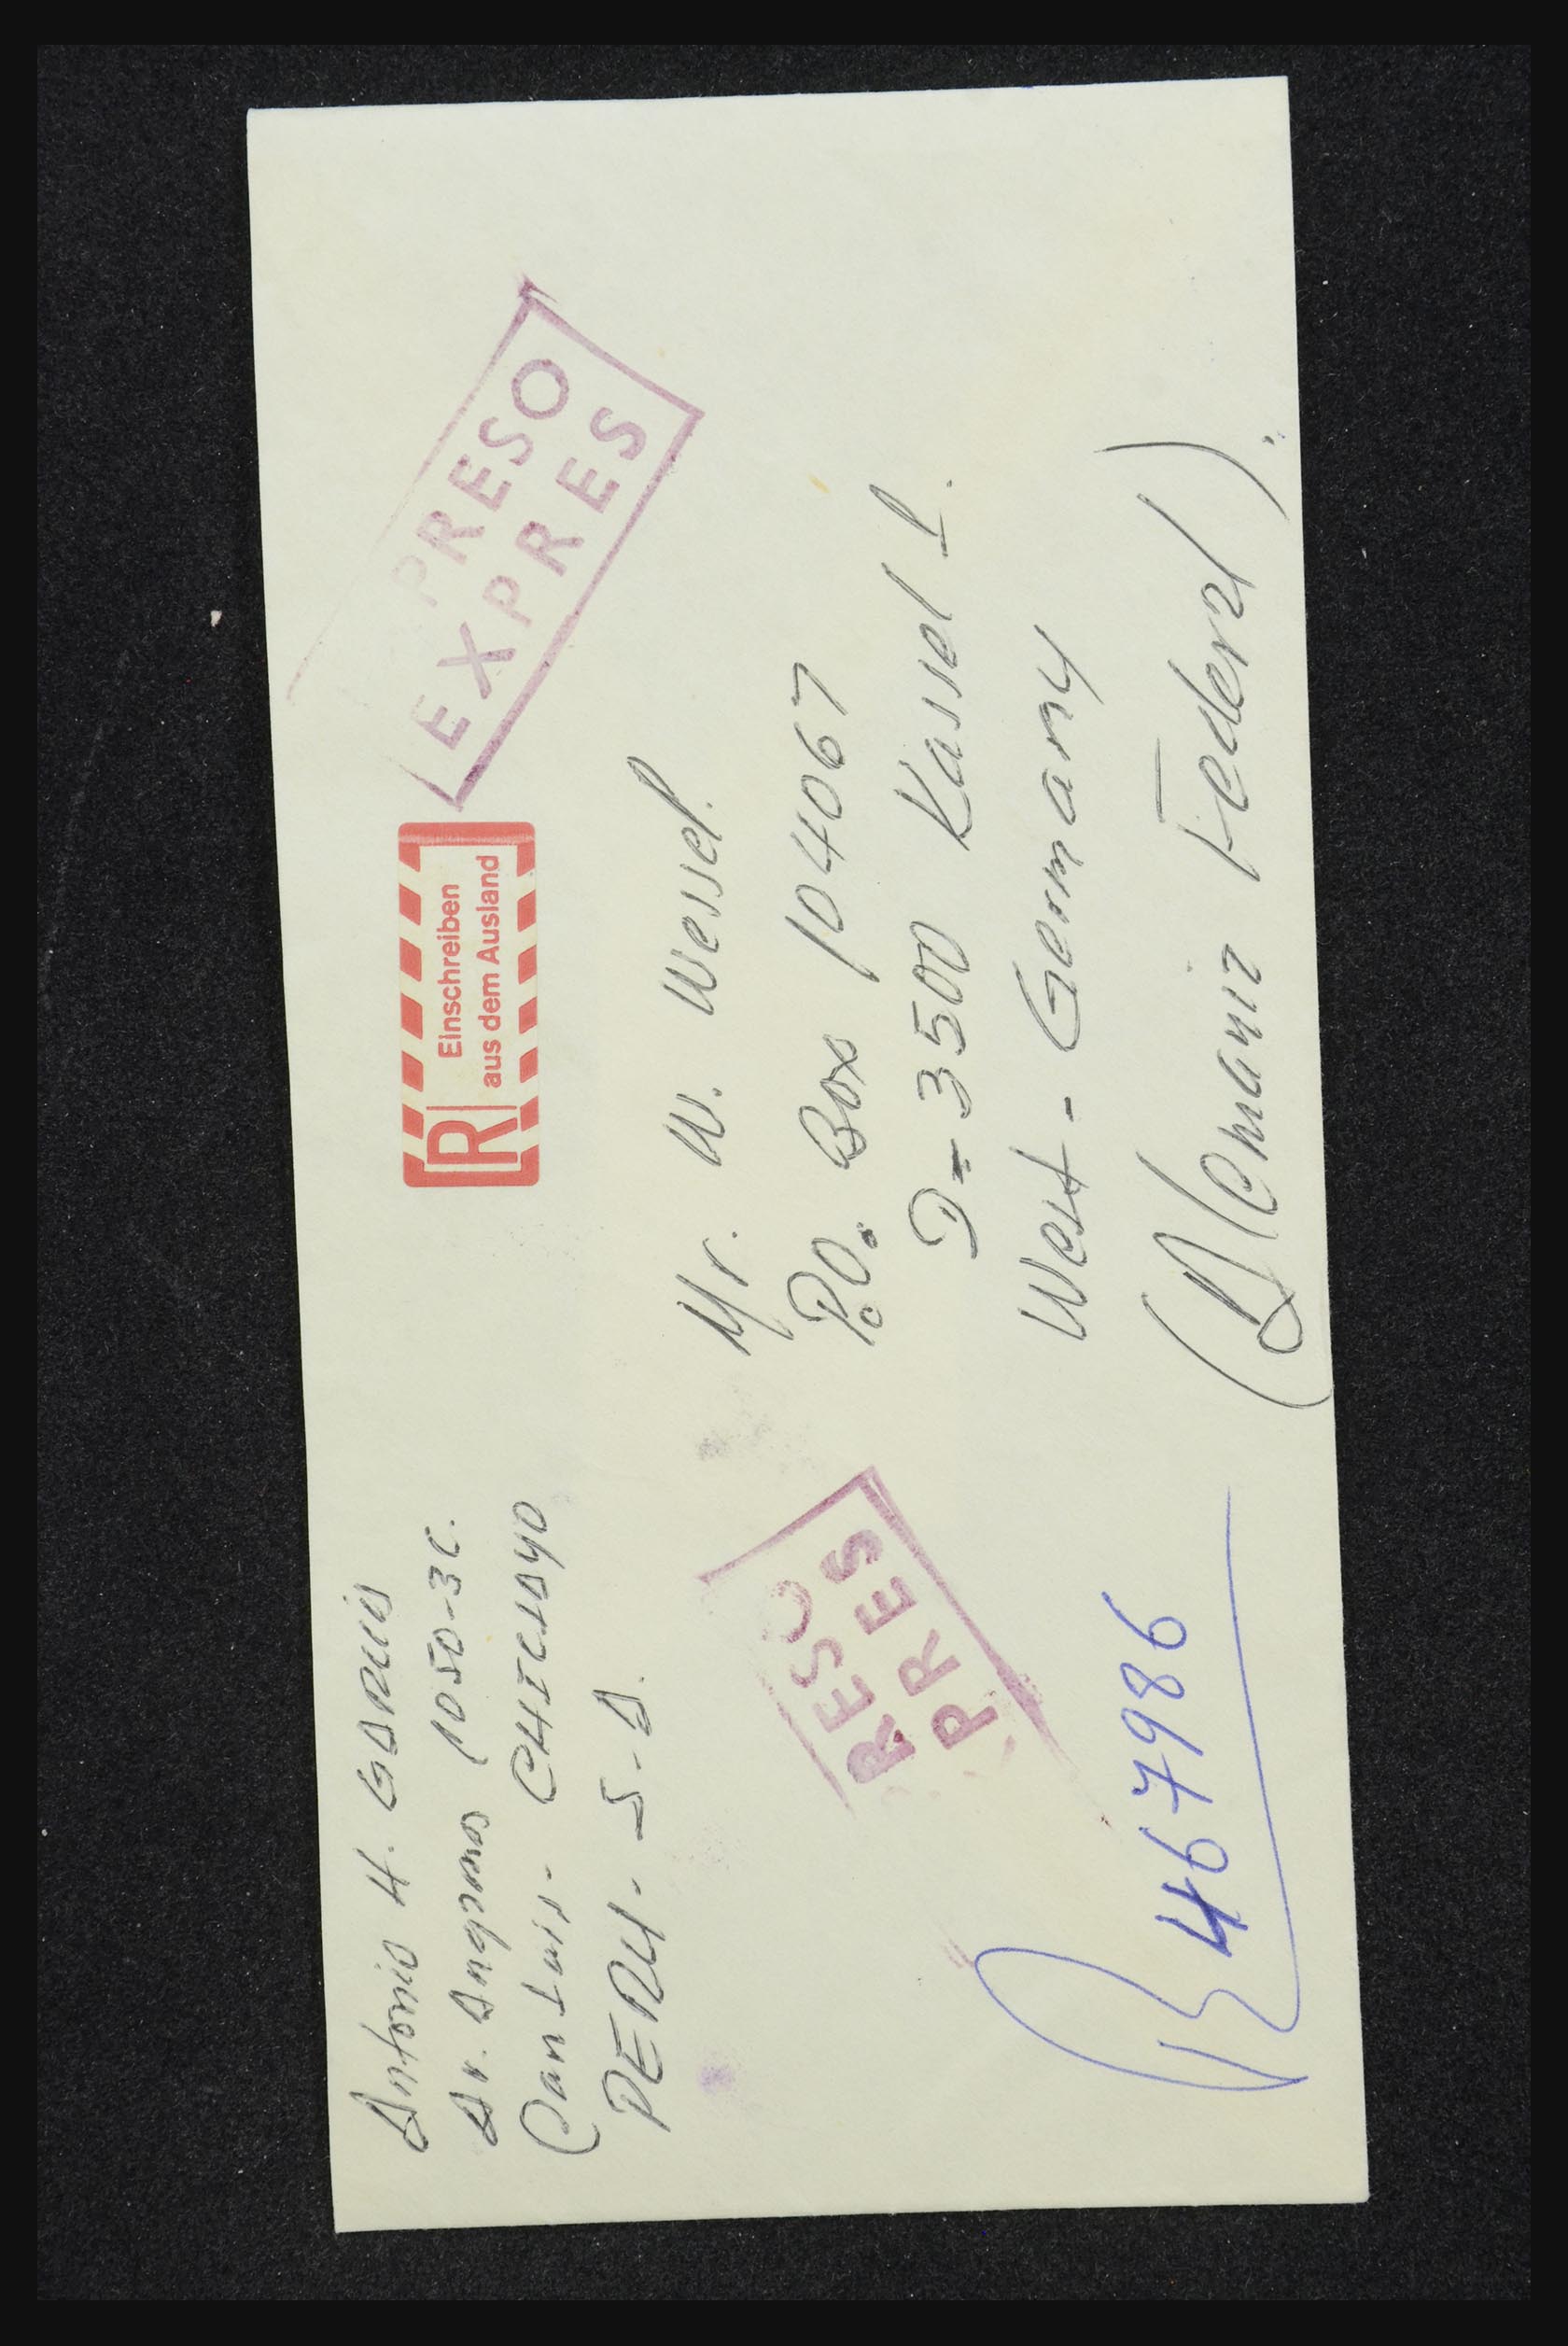 Antonio H. GARCIA
Av. Angamos 1050-3C.
San Luis - CHICLAYO
PERU - S-A.
R
Einschreiben
aus dem Ausland
PRESO
EXPRES
Mr. W. Wessel.
P.O. Box 104067
D-3500 Kassel 1.
West-Germany
(Alemania Federal).
RESO
PRES
R 467986